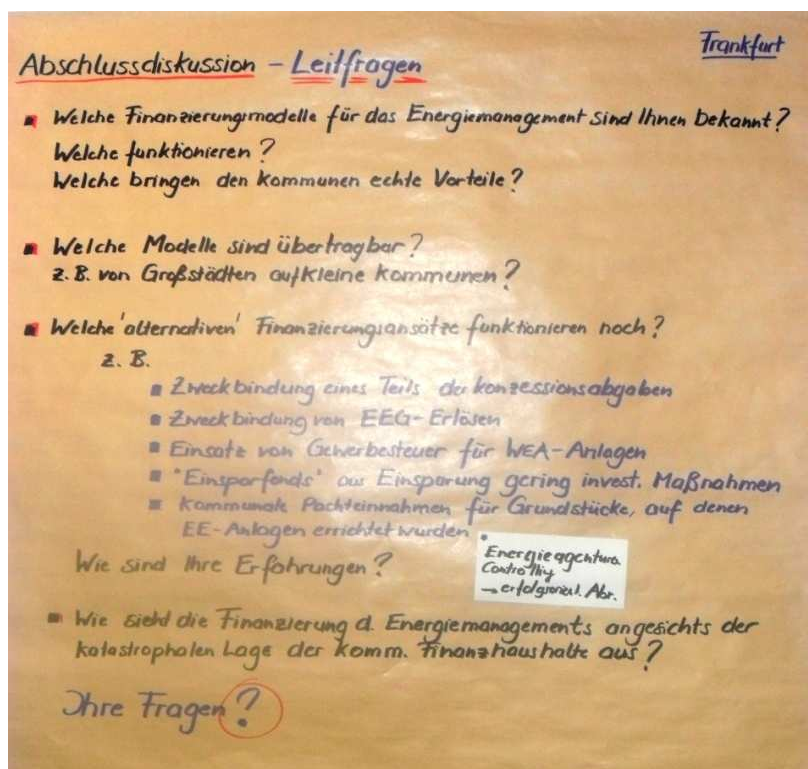 Frankfurt
Abschlussdiskussion - Leitfragen
Welche Finanzierungsmodelle für das Energiemanagement sind Ihnen bekannt?
Welche funktionieren?
Welche bringen den Kommunen echte Vorteile?
Welche Modelle sind übertragbar?
z.B. von Großstädten auf kleine Kommunen?
Welche 'alternativen' Finanzierungsansätze funktionieren noch?
z.B.
Zweckbindung eines Teils der Konzessionsabgaben
Zweckbindung von EEG-Erlösen
Einsatz von Gewerbesteuer für WEA-Anlagen
"Einsparfonds" aus Einsparung gering invest. Maßnahmen
Kommunale Pachteinnahmen für Grundstücke, auf denen
EE-Anlagen errichtet wurden
Wie sind Ihre Erfahrungen?
Controlling
→ Abr.
Wie sieht die Finanzierung d. Energiemanagements angesichts der
katastrophalen Lage der komm. Finanzhaushalte aus?
Ihre Fragen?